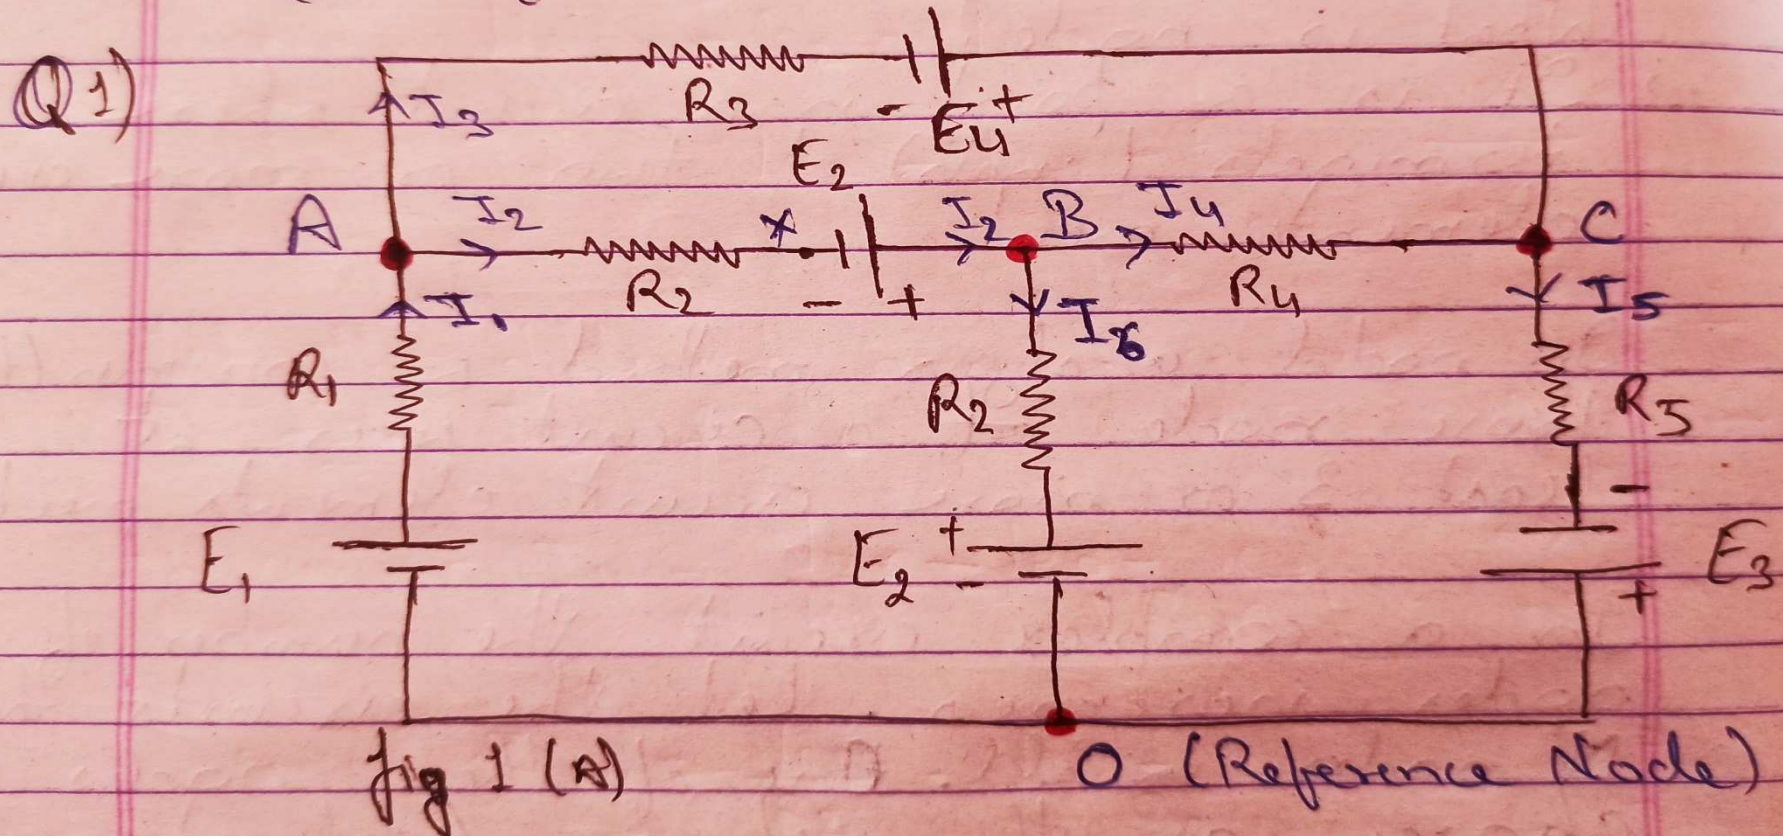 Q1)
I3 R3 - E4 +
E2
A I2 x I2 B I4 C
R2 - + R4
I1 I6 I5
R1 R2 R5
-
E1 E2 + - E3
+
fig 1 (A) O (Reference Node)